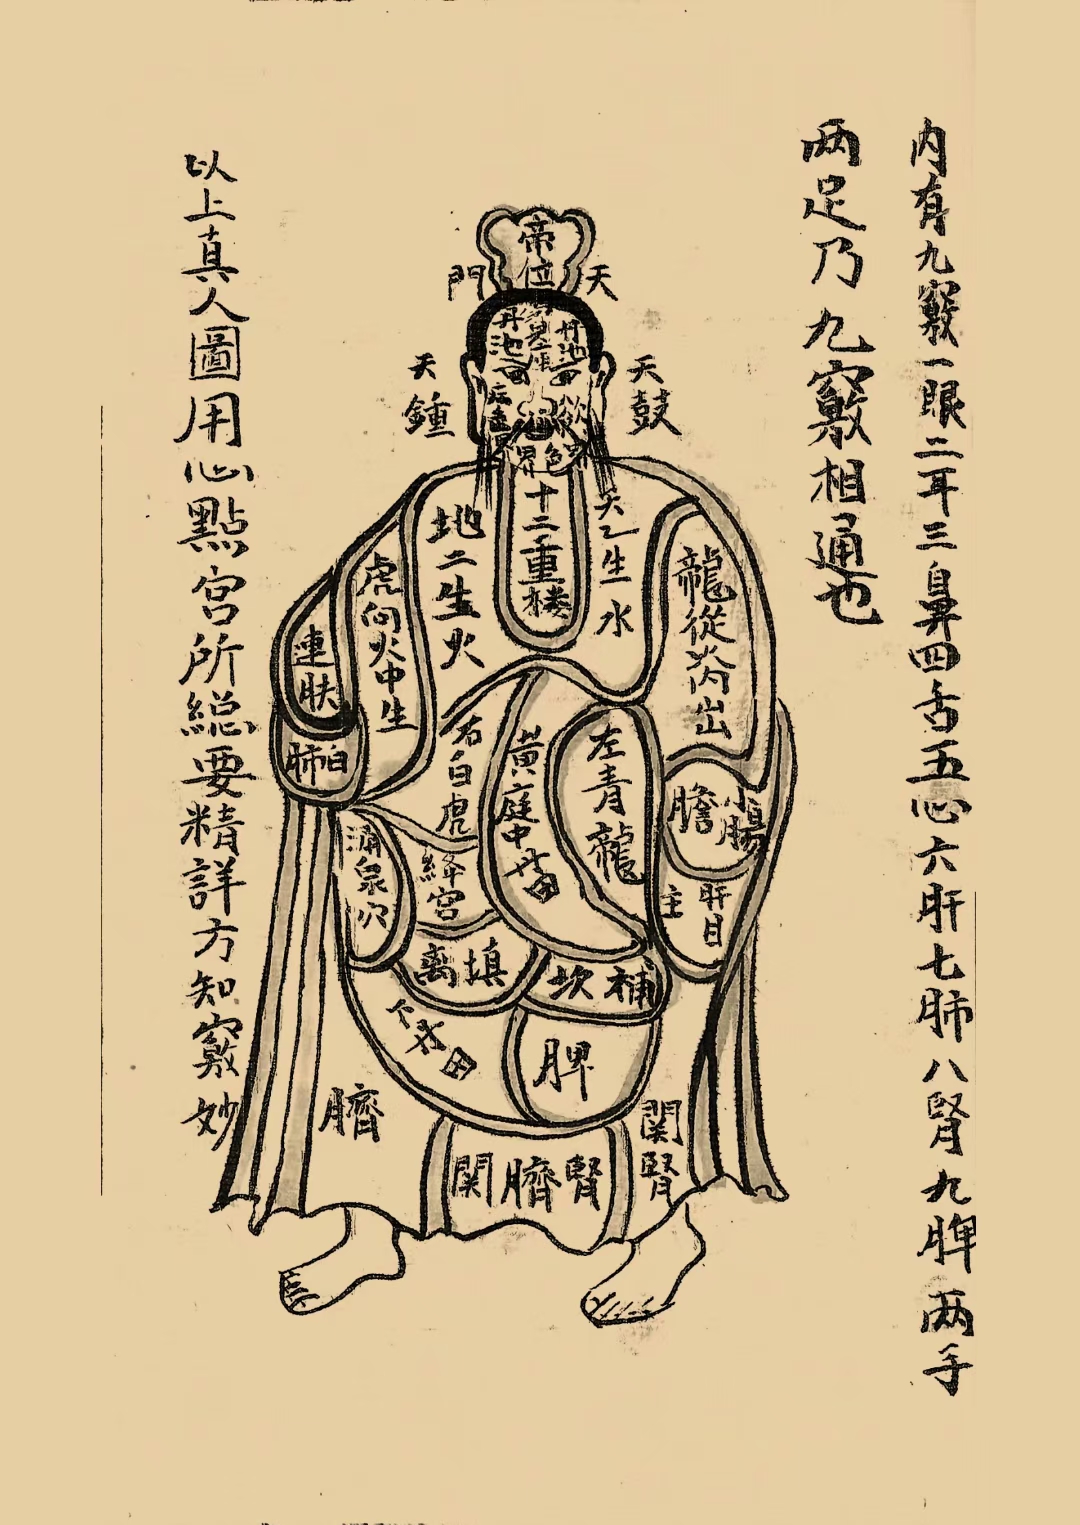 内有九竅一眼二耳三鼻四舌五心六肝七肺八腎九脾两手
两足乃九竅相通也
帝位
天門
丹池
丹池
天鼓
天鍾
欲界
色界
十二重楼
天乙生水
地二生火
龍從火內出
虎向火中生
連肤
白肺
左青龍
右白虎
黃庭中
膽
小腸
肝目
主
涌泉穴
絳宮
填离
補坎
脾
臍
関腎
関臍腎
以上真人圖用心點宮所総要精詳方知竅妙